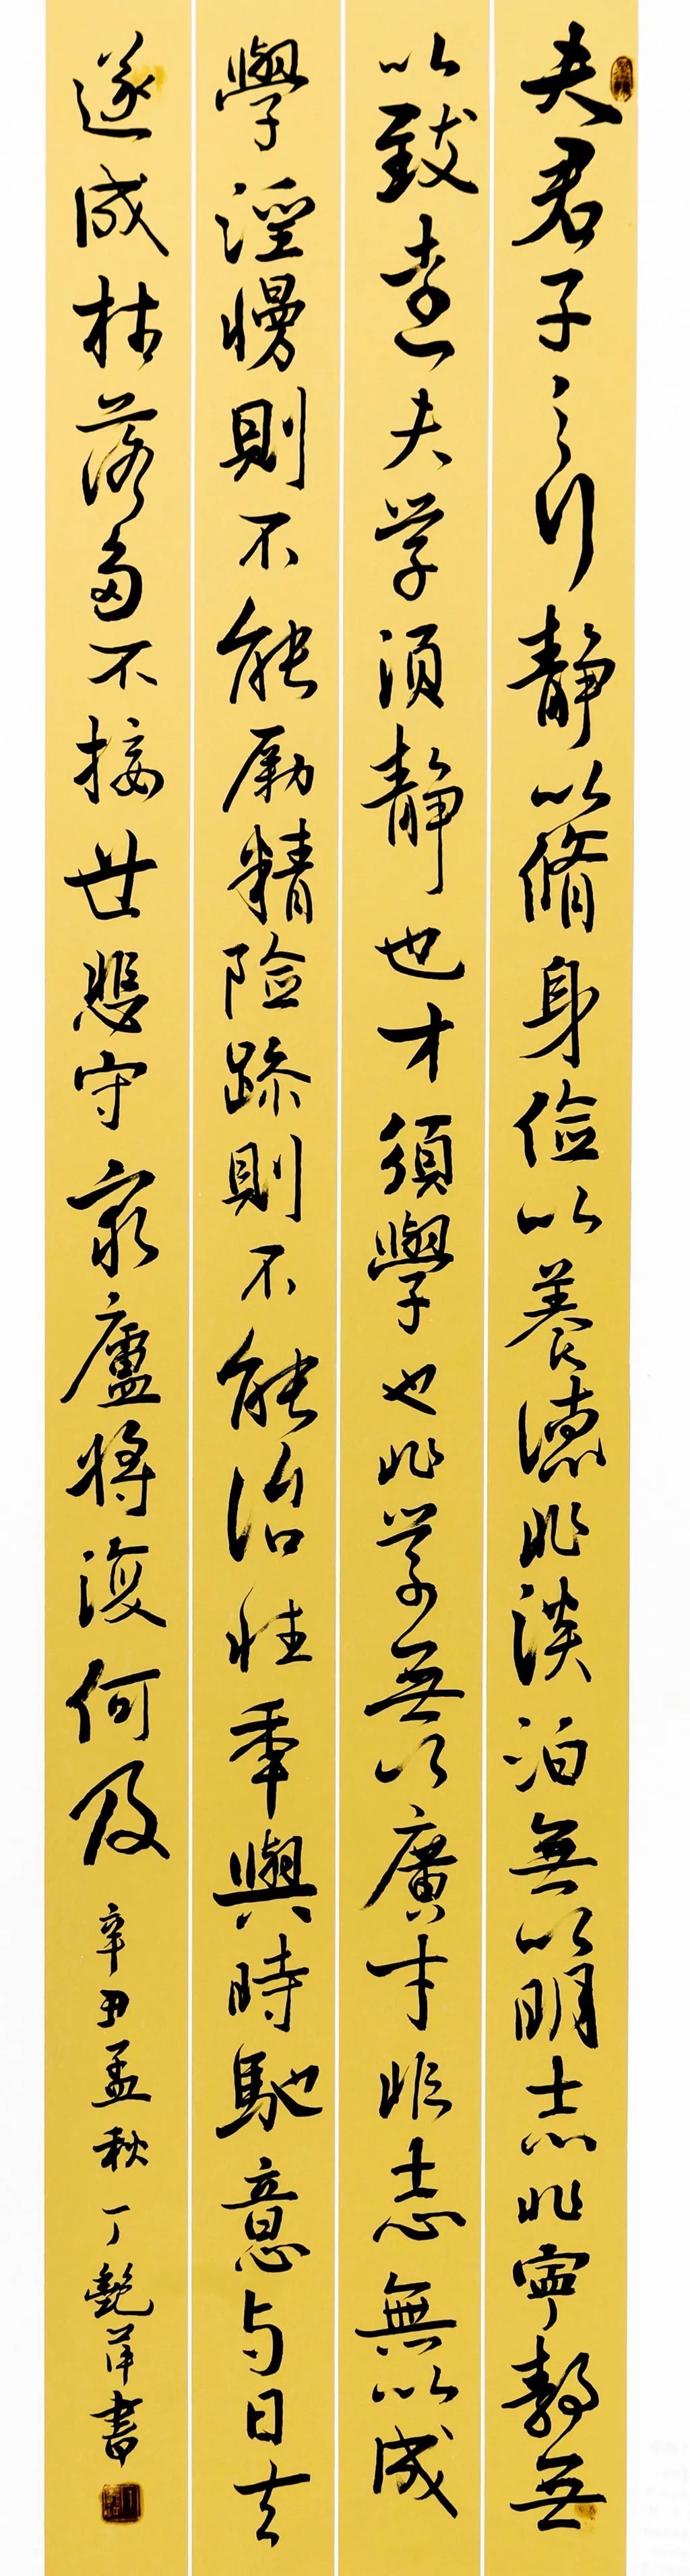 夫君子之行静以脩身俭以养德非淡泊無以明志非寧静無
以致遠夫学須静也才須學也非学無以廣才非志無以成
學淫慢則不能励精险踈則不能治性年與時馳意与日去
遂成枯落多不接世悲守窮廬将復何及
辛丑孟秋丁艷萍書